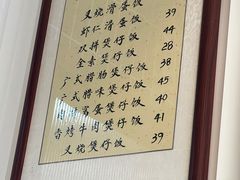 叉烧滑蛋饭 39
虾仁滑蛋饭
双拼煲仔饭 44
全素煲仔饭 28
广式腊肠煲仔饭 38
广式腊味煲仔饭 45
窝蛋煲仔饭 40
香烤牛肉煲仔饭 41
叉烧煲仔饭 39